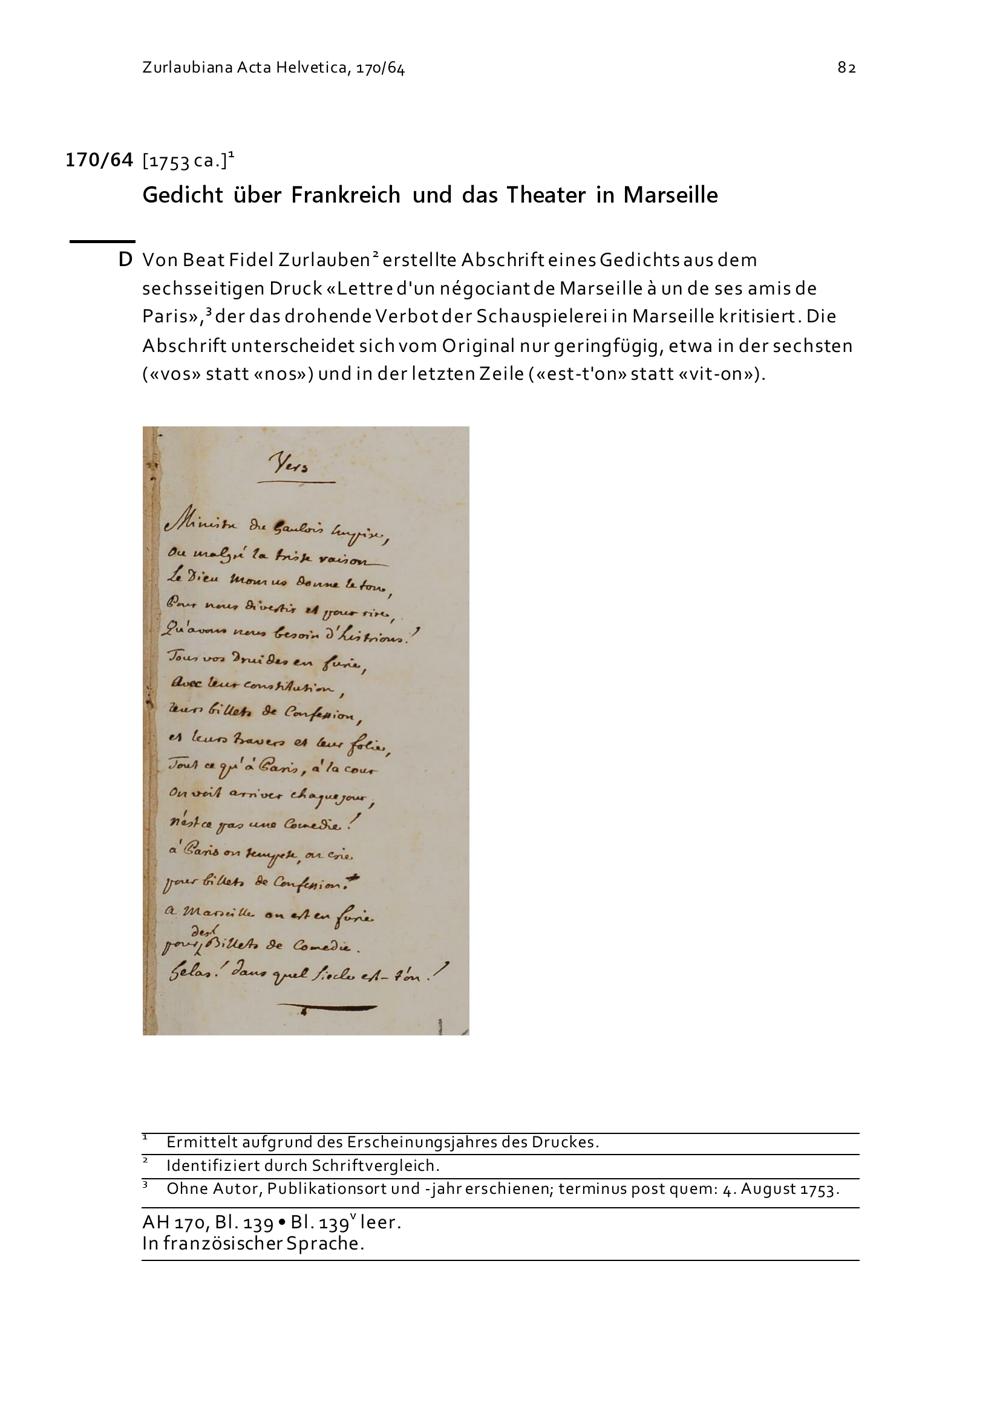 Zurlaubiana Acta Helvetica, 170/64 82
170/64 [1753 ca.]¹
Gedicht über Frankreich und das Theater in Marseille
D Von Beat Fidel Zurlauben² erstellte Abschrift eines Gedichts aus dem
sechsseitigen Druck «Lettre d'un négociant de Marseille à un de ses amis de
Paris»,³ der das drohende Verbot der Schauspielerei in Marseille kritisiert. Die
Abschrift unterscheidet sich vom Original nur geringfügig, etwa in der sechsten
(«vos» statt «nos») und in der letzten Zeile («est-t'on» statt «vit-on»).
Vers
Ministre du Gaulois Empire,
Ou malgré la triste raison
Le Dieu Momus donne le ton,
Pour nous divertir et pour rire,
Qu'avons nous besoin d'histrions?
Tous vos Druides en furie,
Avec leur constitution,
leurs billets de Confession,
et leurs travers et leur folie,
Tout ce qu'à Paris, à la cour
On voit arriver chaque jour,
n'est ce pas une Comedie!
à Paris on tempete, on crie
pour billets de Confession.
a Marseille on est en furie
des
pour Billets de Comedie.
helas! dans quel siecle est-t'on!
¹ Ermittelt aufgrund des Erscheinungsjahres des Druckes.
² Identifiziert durch Schriftvergleich.
³ Ohne Autor, Publikationsort und -jahr erschienen; terminus post quem: 4. August 1753.
AH 170, Bl. 139 • Bl. 139ᵛ leer.
In französischer Sprache.